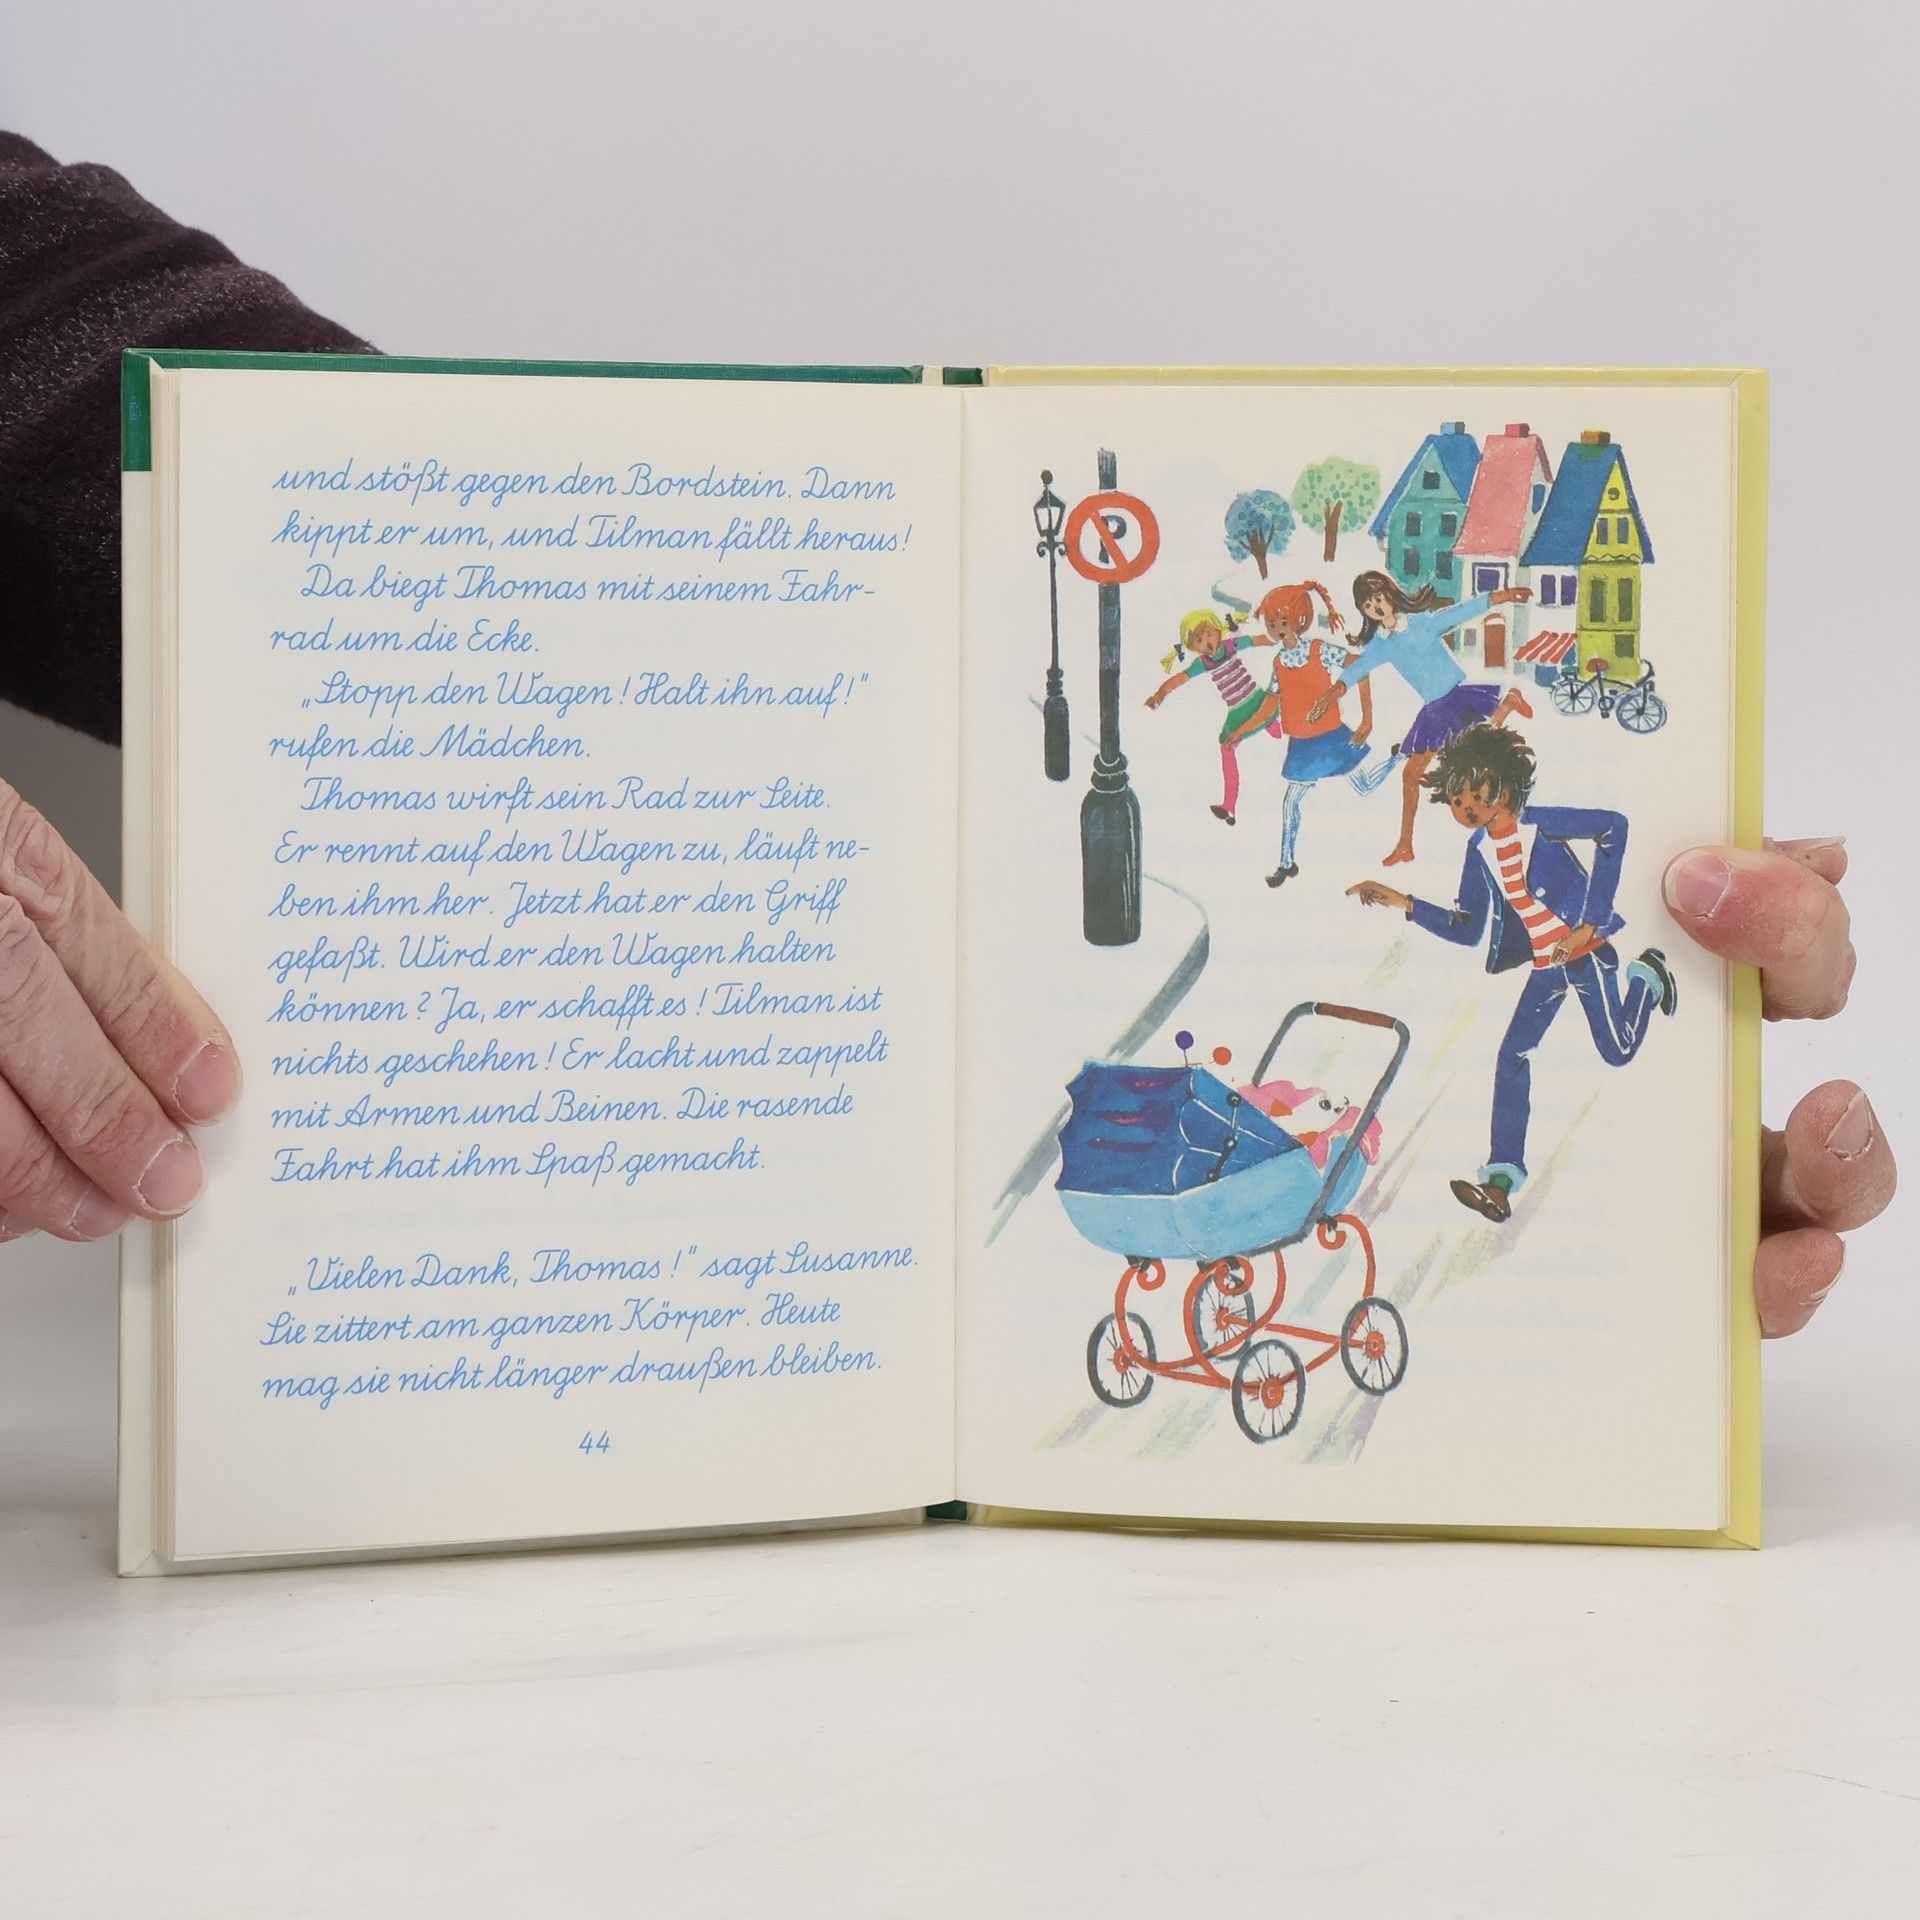 und stößt gegen den Bordstein. Dann
kippt er um, und Tilman fällt heraus!
Da biegt Thomas mit seinem Fahr-
rad um die Ecke.
„Stopp den Wagen! Halt ihn auf!"
rufen die Mädchen.
Thomas wirft sein Rad zur Seite.
Er rennt auf den Wagen zu, läuft ne-
ben ihm her. Jetzt hat er den Griff
gefaßt. Wird er den Wagen halten
können? Ja, er schafft es! Tilman ist
nichts geschehen! Er lacht und zappelt
mit Armen und Beinen. Die rasende
Fahrt hat ihm Spaß gemacht.
„Vielen Dank, Thomas!" sagt Susanne.
Sie zittert am ganzen Körper. Heute
mag sie nicht länger draußen bleiben.
44
P